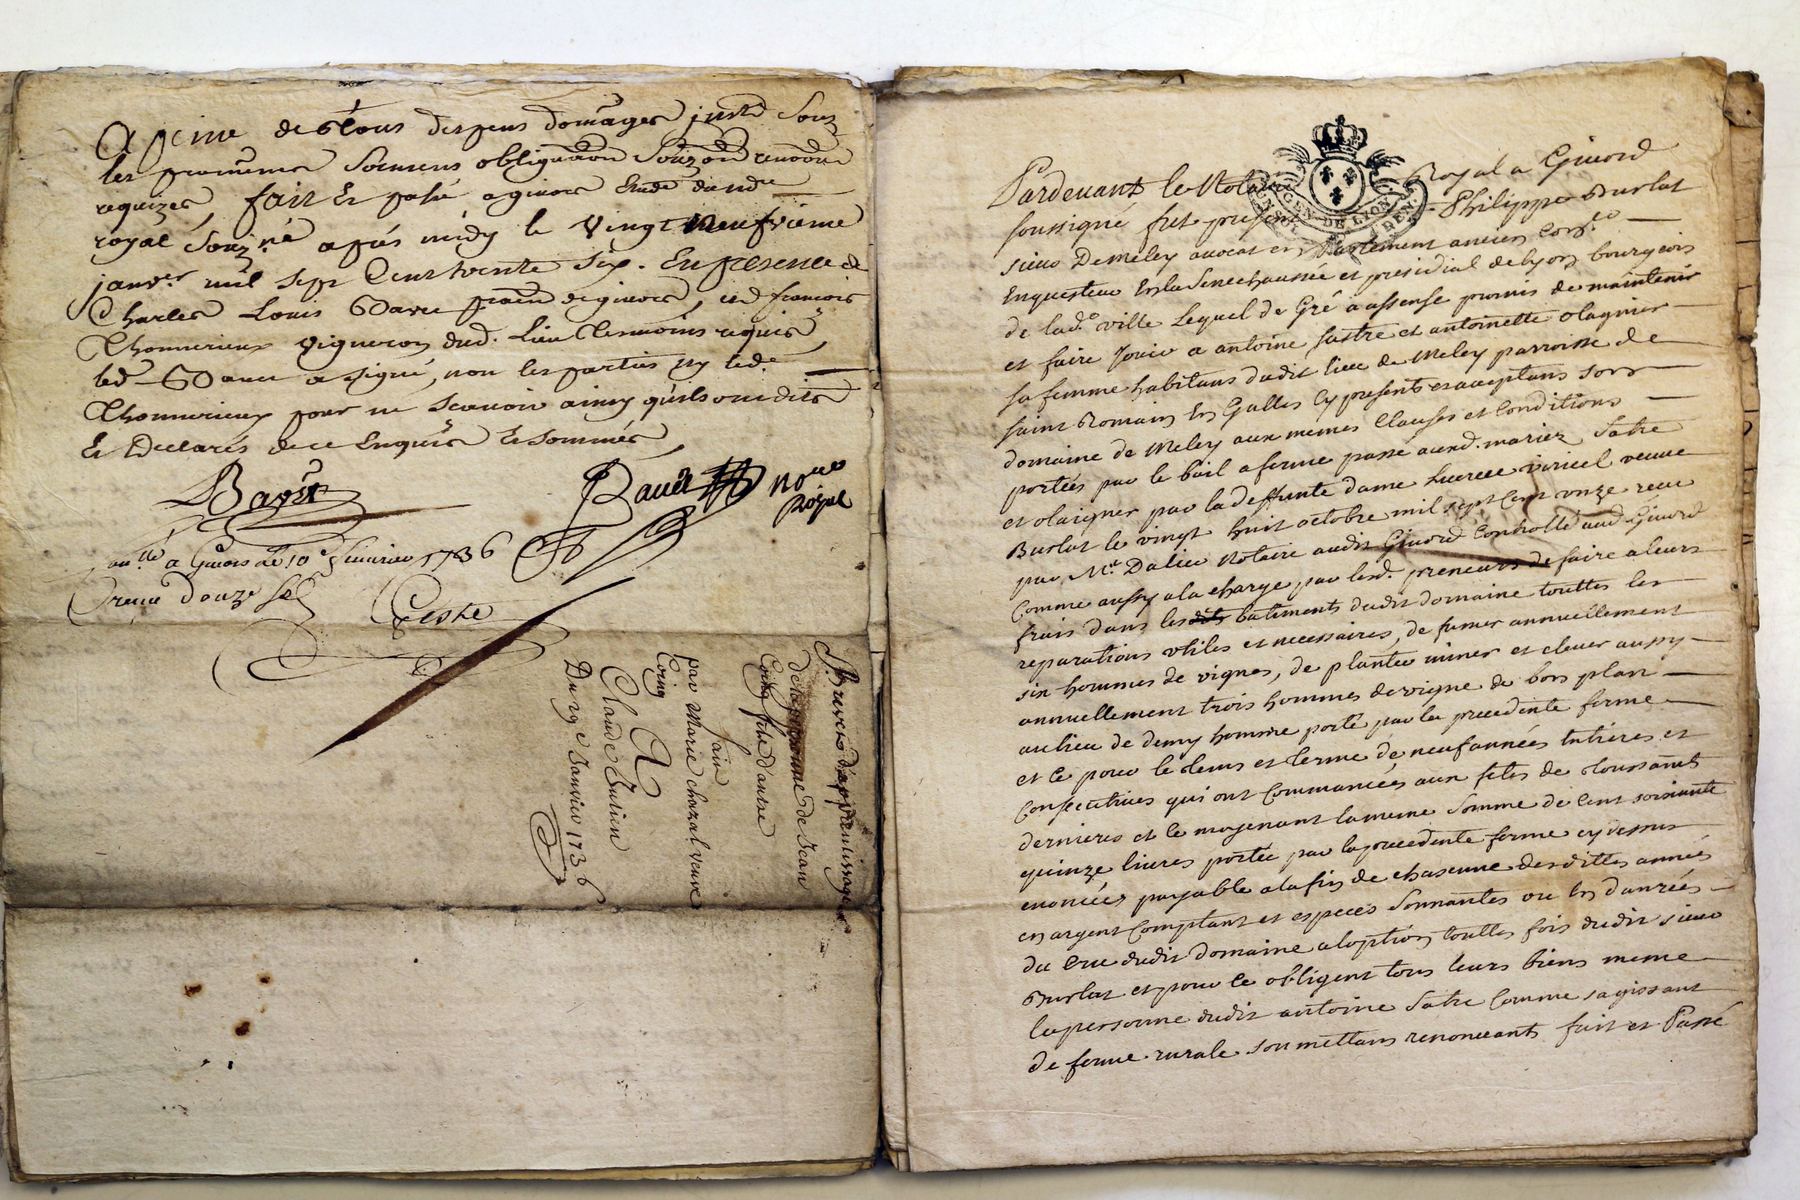 A peine de tous despens domages
les
requizes, fait et passé a givors Etude dud n.re
royal souz.né apres midy le vingt neufvieme
janv.er mil sept Cent trente six. En presence de
Charles Louis Bavet de givors, et françois
Thonnerieux vigneron dud. Lieu tesmoins requis
led. Bavet a signé, non les parties ny led.
Thonnerieux pour ne scavoir ainsy qu'ils ont dit
Et declarés de ce Enquis et sommés
Bavet
Bavet no.re
Royal
a Givors Le 10e fevrier 1736
receu douze
Coste
Brevet d'apprentissage
de la personne de Jean
Coing fils d'autre
Jain
par Marie chazal veuve
Coing
A
Claude
Du 29e Janvier 1736
GEN. DE LYON
Pardevant le Notaire Royal a Givord
soussigné fut present Philippe Burlat
sieur Demeley avocat en Parlement ancien Cons.er
Enquesteur En la Senechaussée et presidial de lyon bourgeois
de lad.e ville Lequel de Gré a assensé promis de maintenir
et faire Jouir a antoine Sastre et antoinette olagnier
sa femme habitans dudit lieu de Meley parroisse de
saint Romain En Galles Cy presents et acceptans son
domaine de Meley aux memes Clauses et Conditions
portées par le bail a ferme passé aud. mariez Satre
et olaignier par la deffunte dame veuve
Burlat le vingt huit octobre mil sept Cent onze receu
par M.e Dalier Notaire audit Givord Controllé aud. Givord
Comme aussy a la charge par lesd. preneurs de faire a leurs
frais dans les dits batiments dudit domaine touttes les
reparations utiles et necessaires, de fumer annuellement
six hommes de vignes, de planter miner et elever aussy
annuellement trois hommes de vigne de bon plan
au lieu de demy homme porté par la precedente ferme
et ce pour le tems et terme de neuf années Entieres et
Consecutives qui ont Commancées aux fetes de Toussaints
dernieres et le moyenant la meme somme de Cent soixante
quinze livres portée par la precedente ferme cy dessus
enoncées payable a la fin de chascune desdittes années
en argent Comptant et especes sonnantes ou en danrées
du Cru dudit domaine a l'option touttes fois dudit sieur
Burlat et pour ce obligent tous leurs biens meme
la personne dudit antoine Satre Comme sagissant
de ferme rurale soumettans renonceants fait et Passé